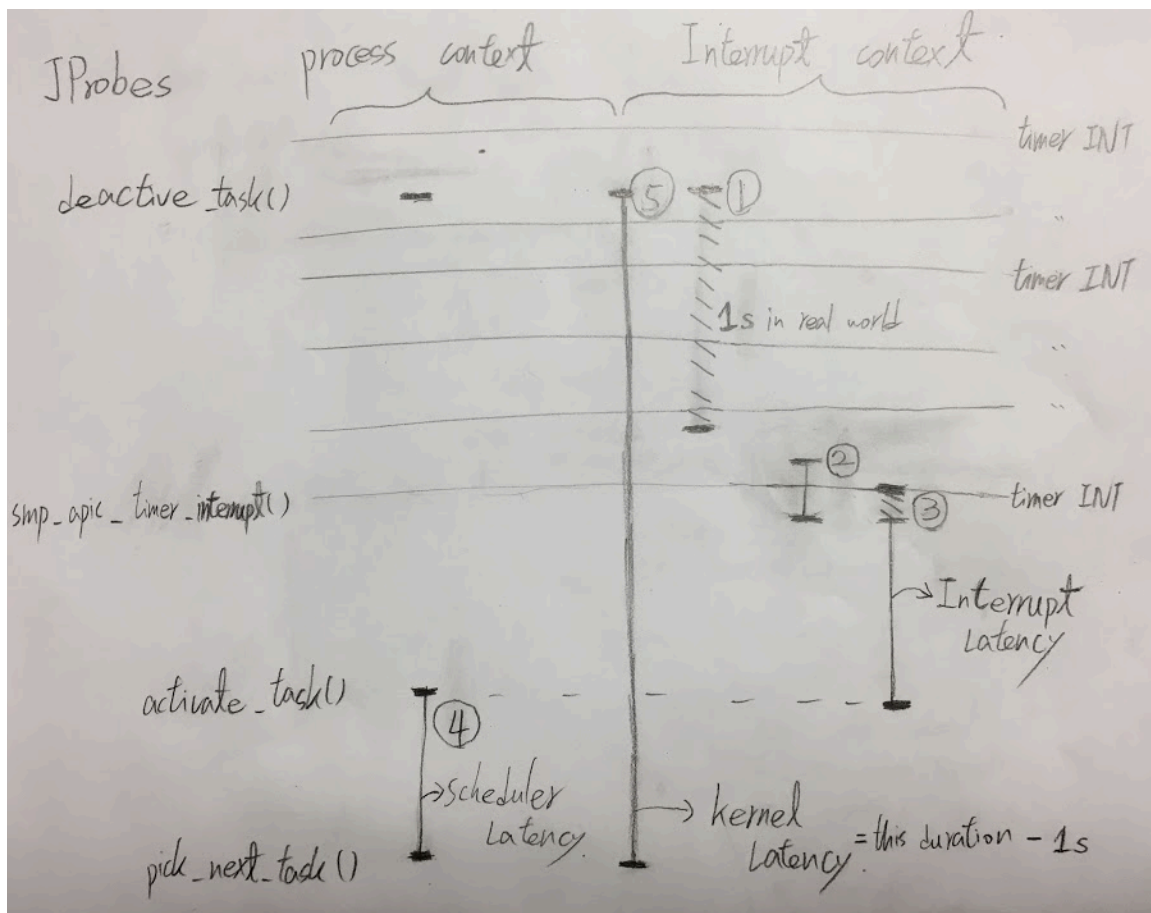 JProbes
process context
Interrupt context
timer INT
deactive_task()
⑤
①
"
timer INT
1s in real world
"
"
②
smp_apic_timer_interrupt()
timer INT
③
Interrupt
Latency
activate_task()
④
scheduler
Latency
kernel
Latency = this duration - 1s
pick_next_task()